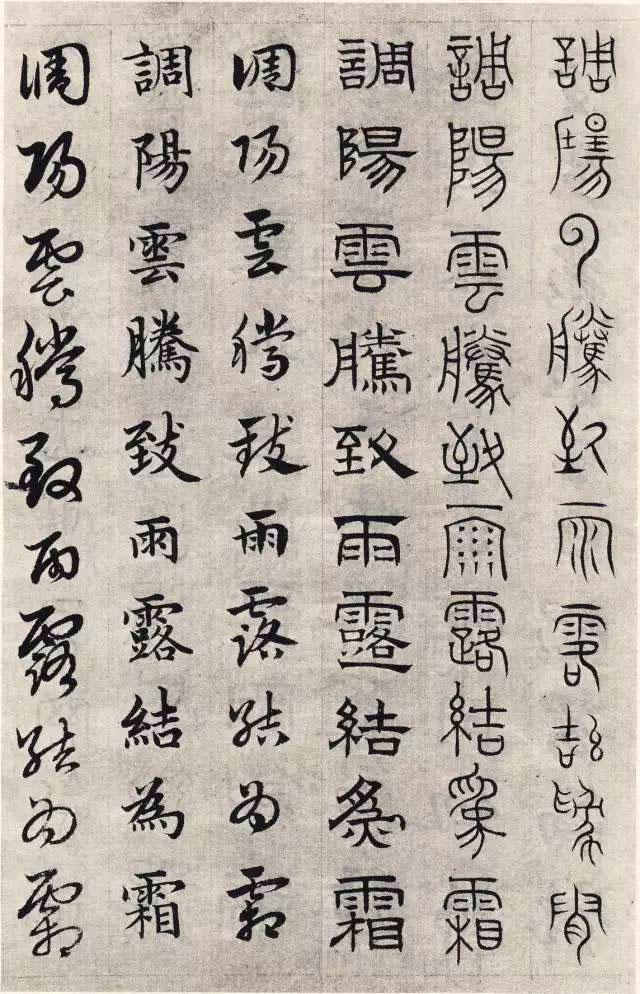 調陽雲騰致雨露結為霜
調陽雲騰致雨露結為霜
調陽雲騰致雨露結為霜
調陽雲騰致雨露結為霜
調陽雲騰致雨露結為霜
調陽雲騰致雨露結為霜